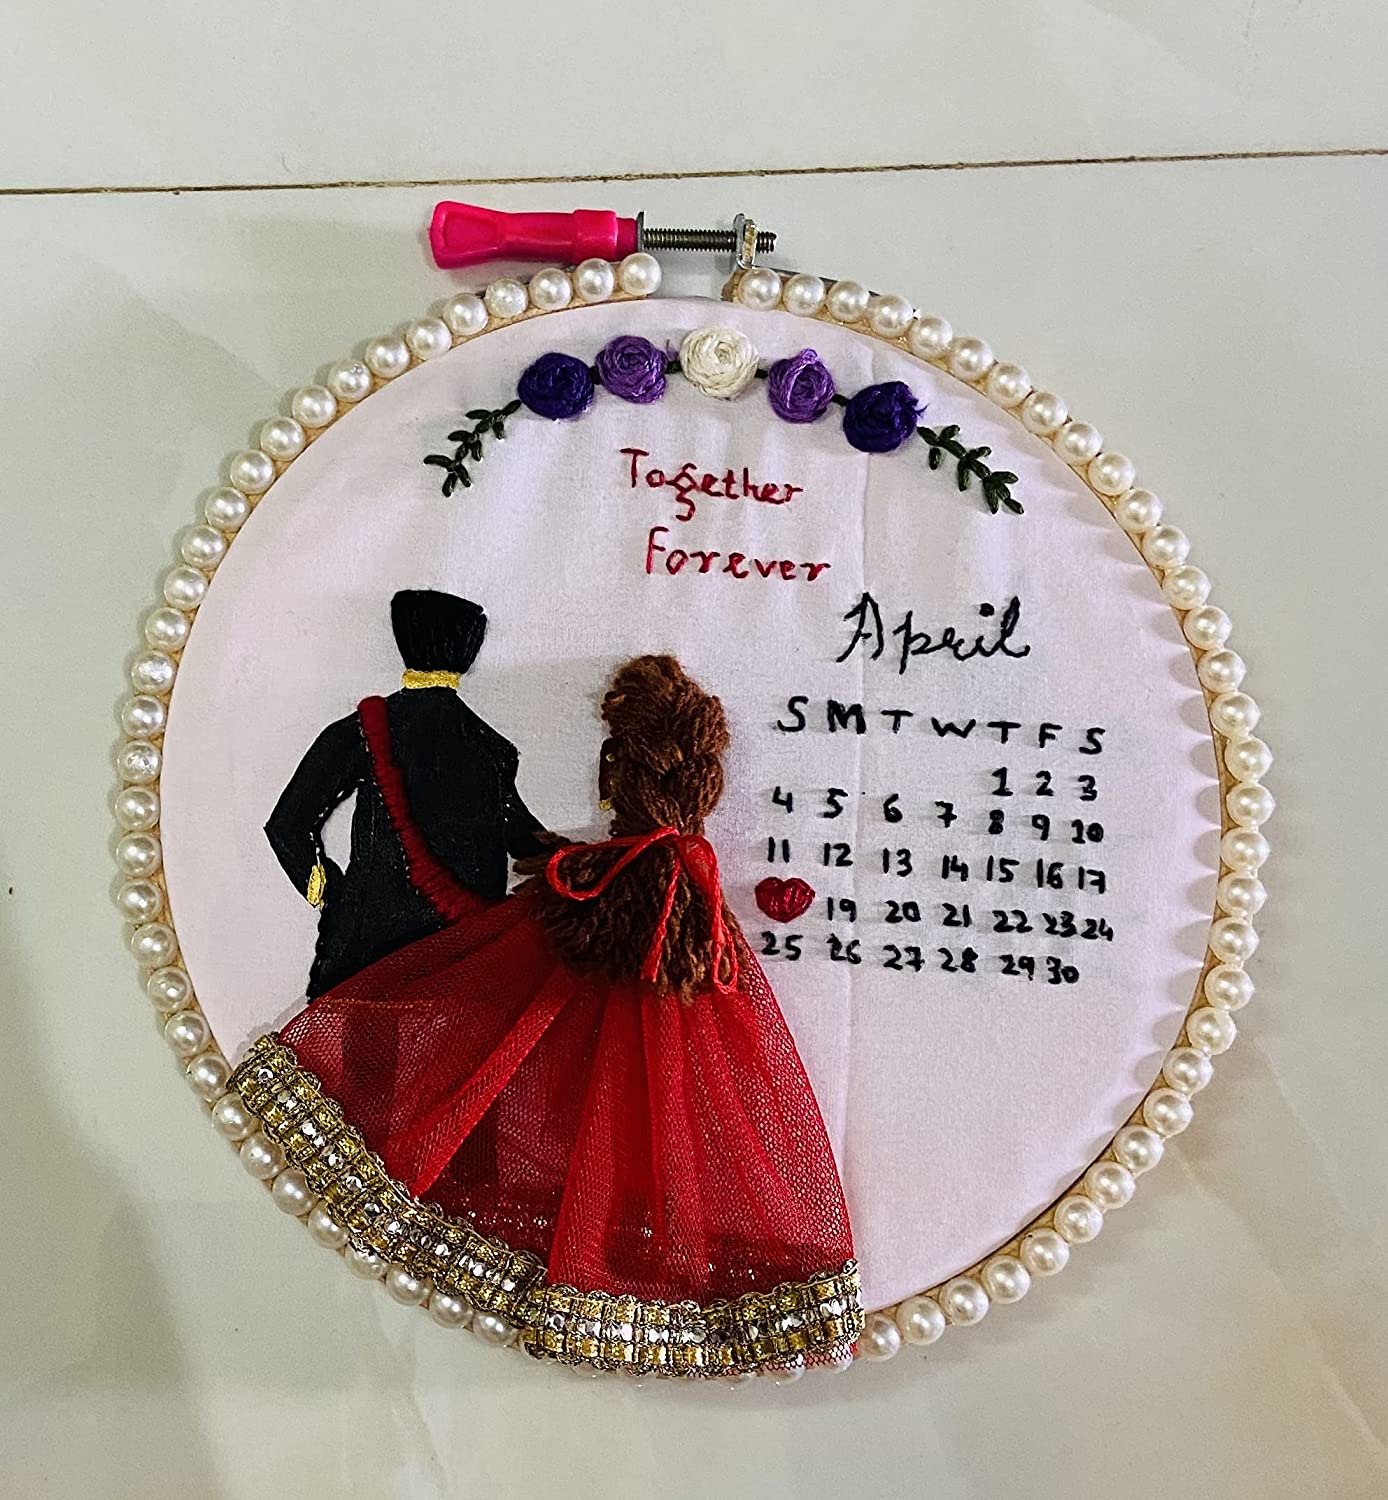 Together
Forever
April
S M T W T F S
1 2 3
4 5 6 7 8 9 10
11 12 13 14 15 16 17
19 20 21 22 23 24
25 26 27 28 29 30